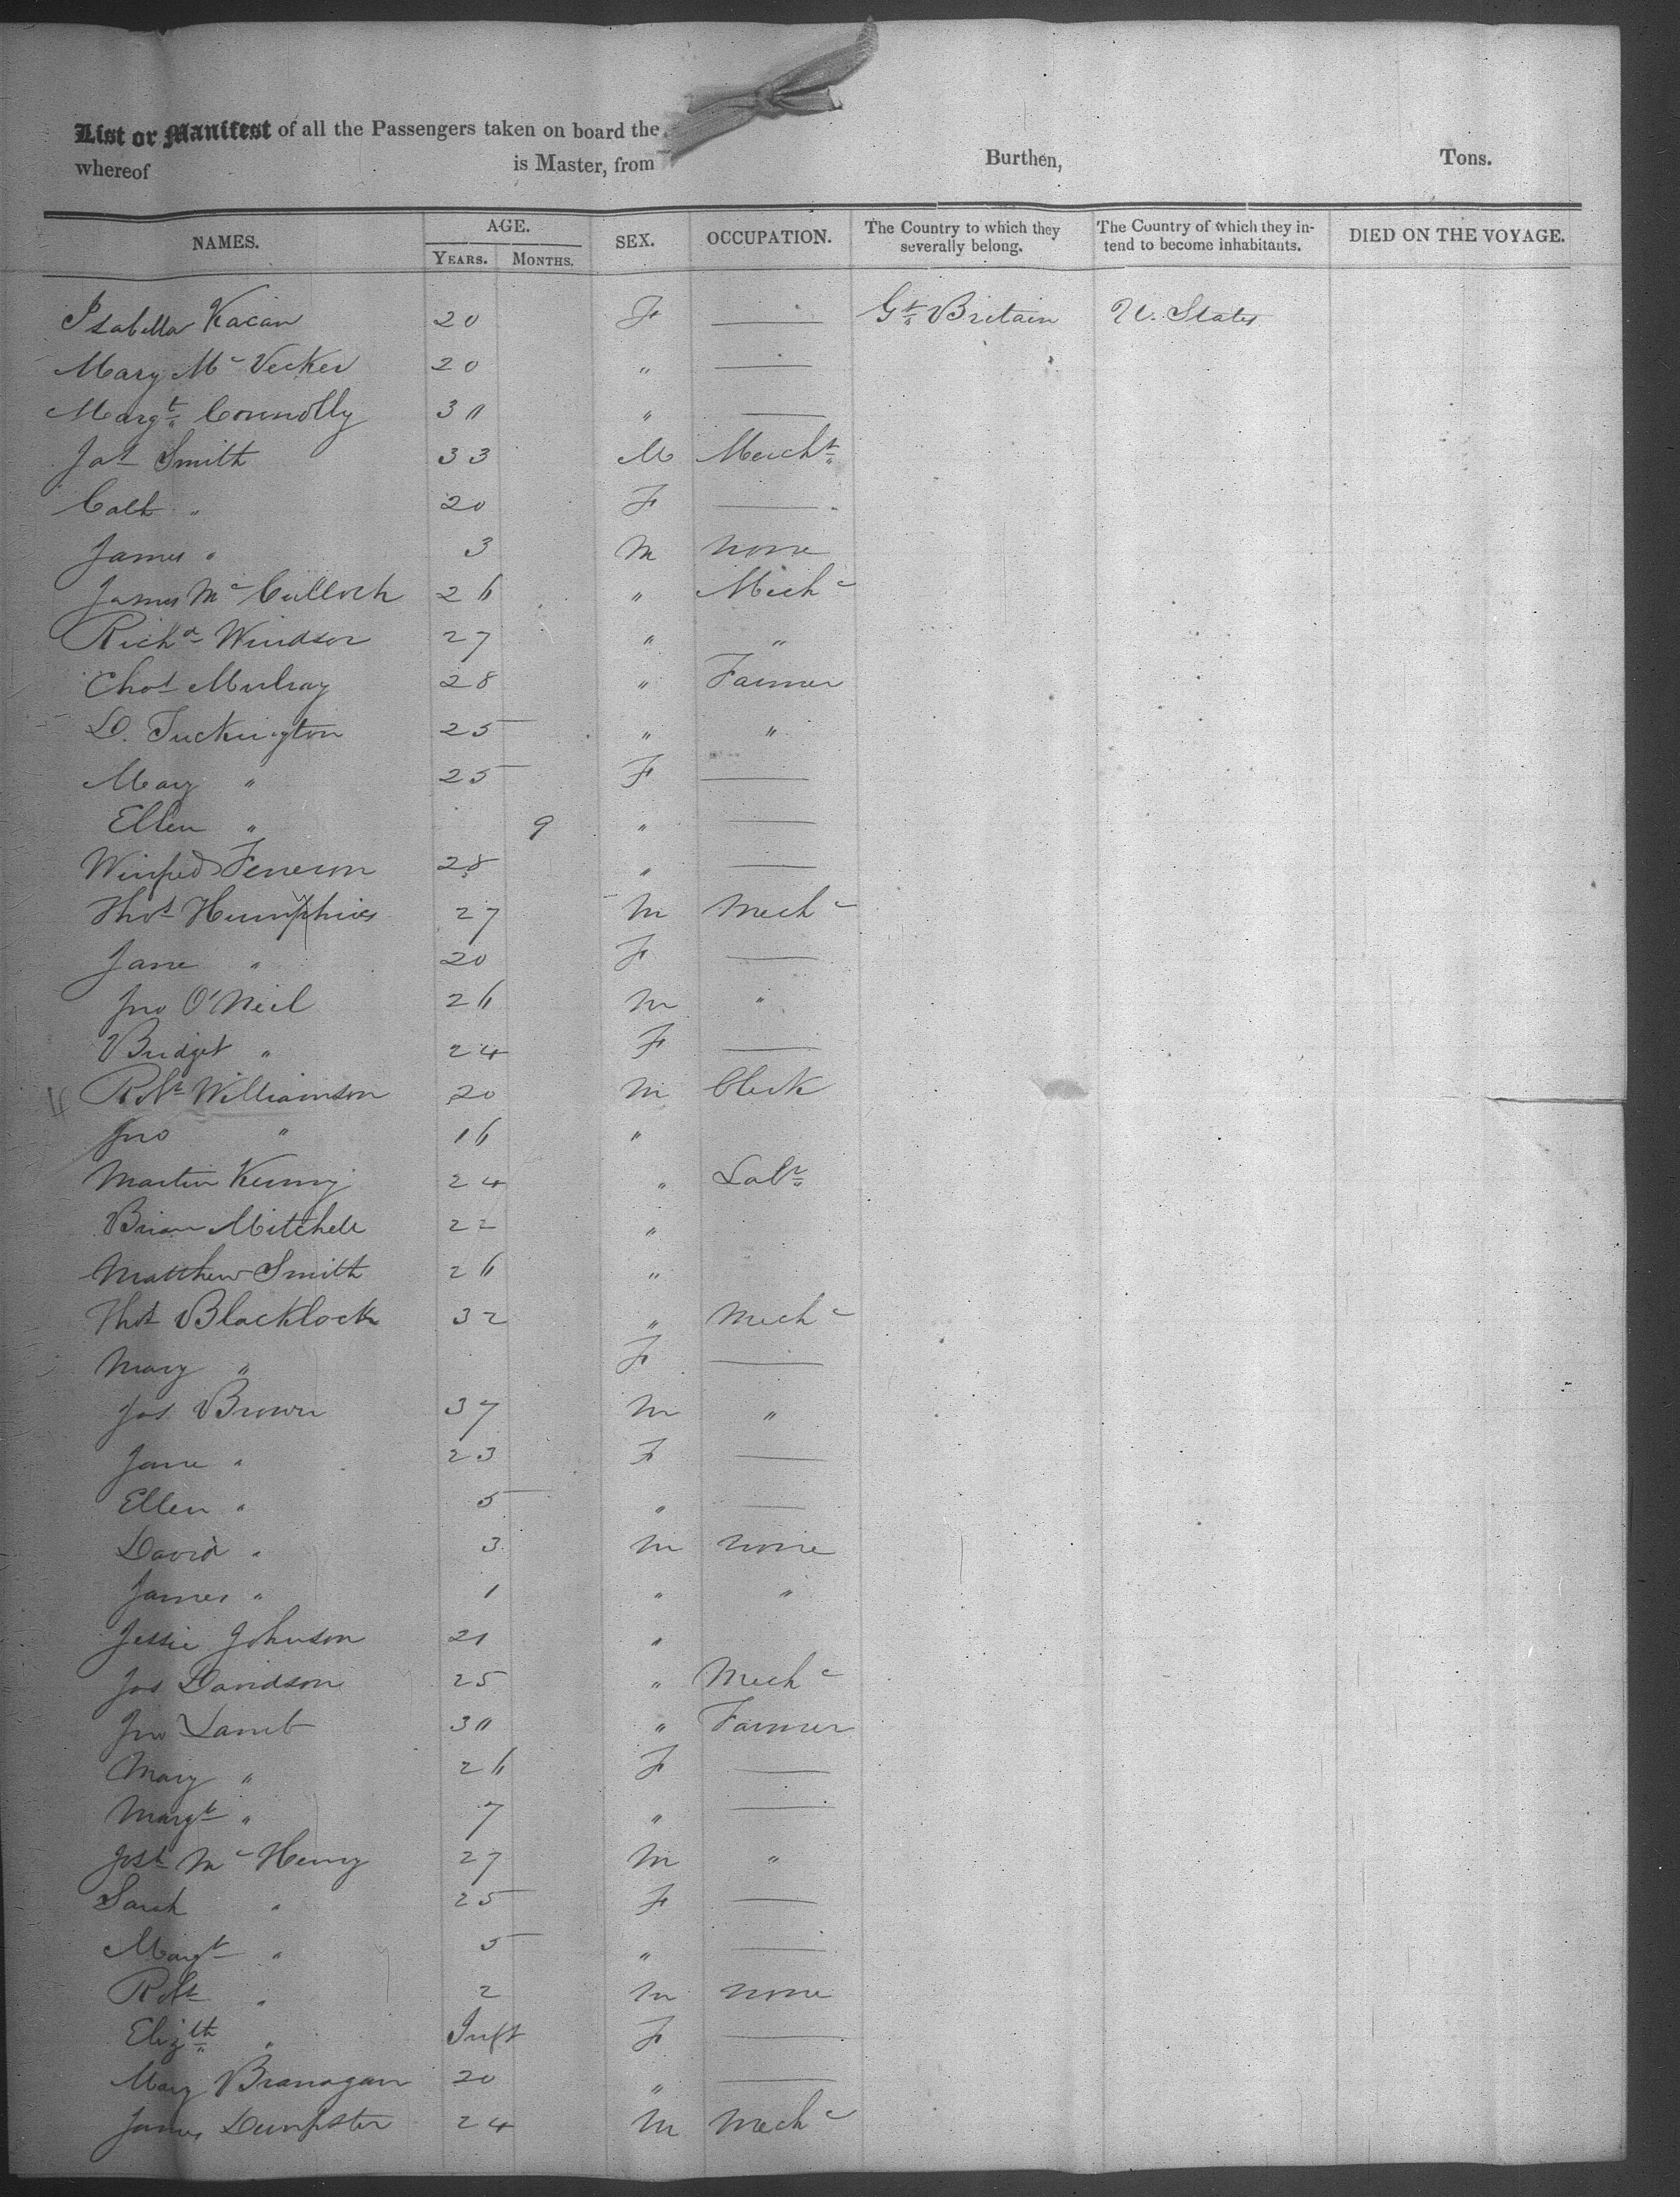 List or Manifest of all the Passengers taken on board the
whereof is Master, from Burthen, Tons.
NAMES. AGE. YEARS. MONTHS. SEX. OCCUPATION. The Country to which they severally belong. The Country of which they intend to become inhabitants. DIED ON THE VOYAGE.
Isabella Kacan 20 F — Gt Britain U. States
Mary Mc Vecker 20 " —
Margt Connolly 30 " —
Jas Smith 33 M Mercht
Cath " 20 F —
James " 3 M none
James Mc Culloch 26 " Mechc
Richd Windsor 27 " "
Chas Mulray 28 " Farmer
D. Tuckington 25 " "
Mary " 25 F —
Ellen " 9 " —
Winifred 28 " —
Thos Humphries 27 M Mechc
Jane " 20 F —
Jno O'Neil 26 M "
Bridget " 24 F —
Robt Williamson 20 M Clerk
Jno " 16 "
Martin Kenny 24 " Labr
Brian Mitchell 22 "
Matthew Smith 26 "
Thos Blacklock 32 " Mechc
Mary " F —
Jos Brown 37 M "
Jane " 23 F —
Ellen " 5 " —
David " 3 M none
James " 1 " "
Jessie Johnson 21 "
Jos Davidson 25 " Mechc
Jno Lamb 30 " Farmer
Mary " 26 F —
Margt " 7 " —
Josh Mc Henry 27 M "
Sarah " 25 F —
Margt " 5 " —
Robt " 2 M none
Elizth " Inft F —
Mary Branagan 20 " —
James Dumpster 24 M Mechc